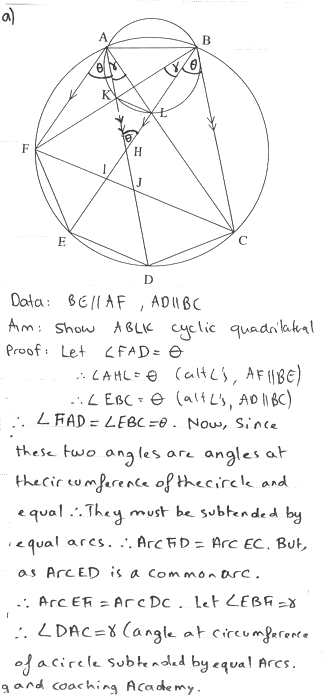 a)
A
B
θ
γ
γ
θ
K
L
F
θ
H
I
J
E
C
D
Data: BE//AF, AD//BC
Aim: Show ABLK cyclic quadrilateral
Proof: Let ∠FAD = θ
∴ ∠AHL = θ (alt∠'s, AF//BE)
∴ ∠EBC = θ (alt∠'s, AD//BC)
∴ ∠FAD = ∠EBC = θ. Now, since
these two angles are angles at
the circumference of the circle and
equal ∴ They must be subtended by
equal arcs. ∴ Arc FD = Arc EC. But,
as Arc ED is a common arc.
∴ Arc EF = Arc DC. Let ∠EBF = γ
∴ ∠DAC = γ (angle at circumference
of a circle subtended by equal Arcs.
g and coaching Academy.